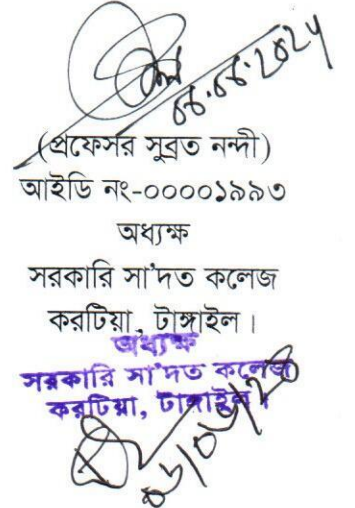 06.06.2024
(প্রফেসর সুব্রত নন্দী)
আইডি নং-০০০০১৯৯৩
অধ্যক্ষ
সরকারি সা'দত কলেজ
করটিয়া, টাঙ্গাইল।
অধ্যক্ষ
সরকারি সা'দত কলেজ
করটিয়া, টাঙ্গাইল।